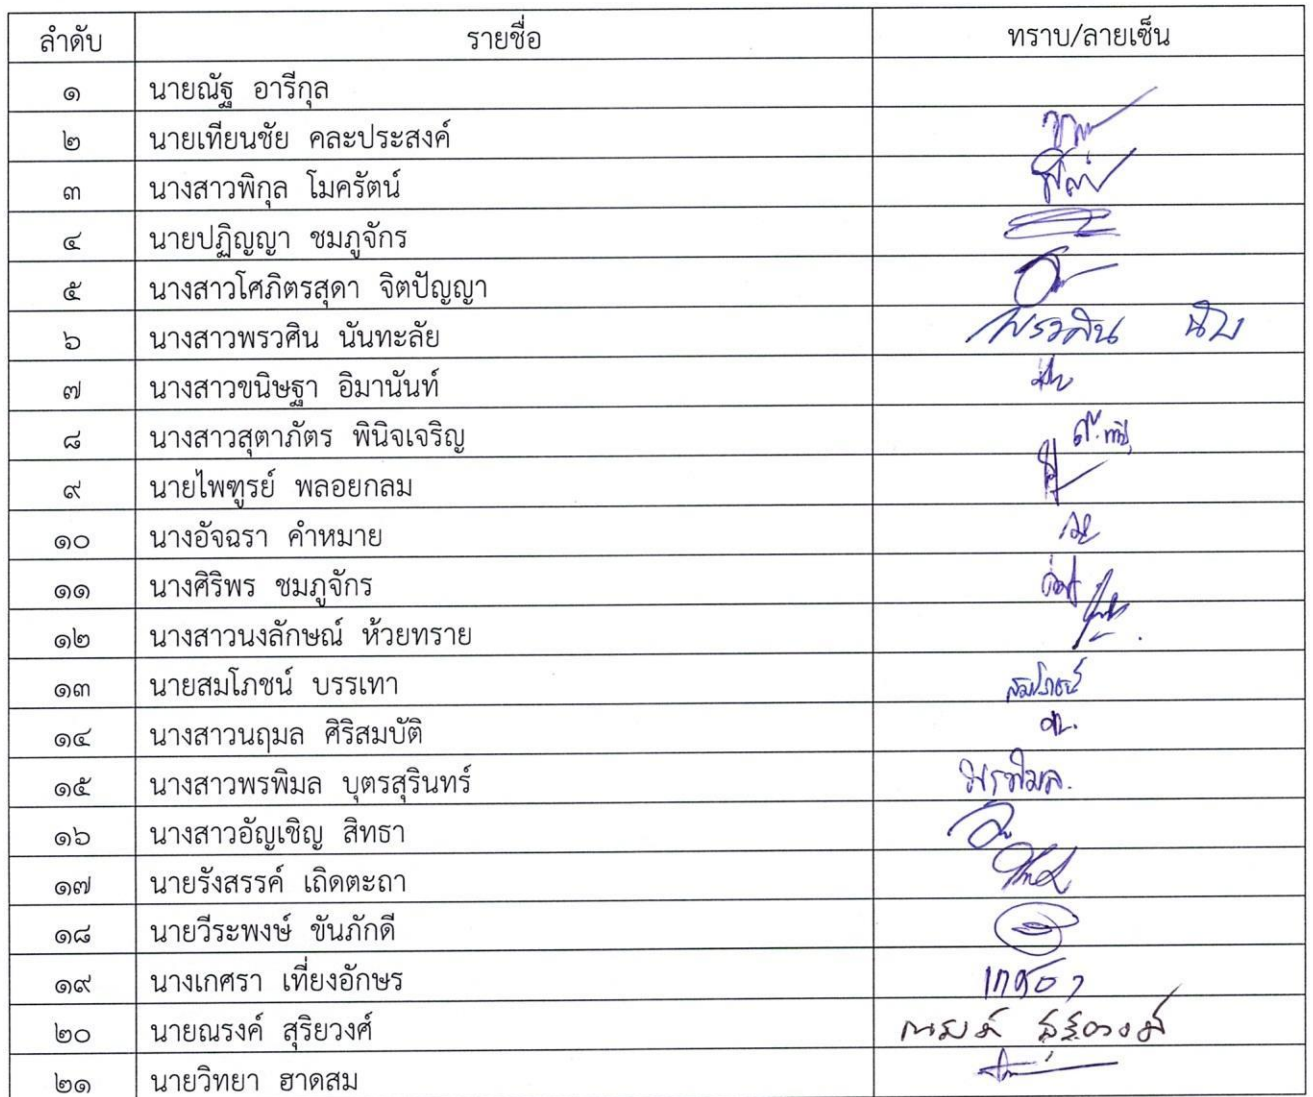 ลำดับ รายชื่อ ทราบ/ลายเซ็น
๑ นายณัฐ อารีกุล
๒ นายเทียนชัย คละประสงค์
๓ นางสาวพิกุล โมครัตน์
๔ นายปฏิญญา ชมภูจักร
๕ นางสาวโศภิตรสุดา จิตปัญญา
๖ นางสาวพรวศิน นันทะลัย พรวศิน
๗ นางสาวขนิษฐา อิมานันท์
๘ นางสาวสุตาภัตร พินิจเจริญ
๙ นายไพฑูรย์ พลอยกลม
๑๐ นางอัจฉรา คำหมาย
๑๑ นางศิริพร ชมภูจักร
๑๒ นางสาวนงลักษณ์ ห้วยทราย
๑๓ นายสมโภชน์ บรรเทา สมโภชน์
๑๔ นางสาวนฤมล ศิริสมบัติ
๑๕ นางสาวพรพิมล บุตรสุรินทร์ พรพิมล.
๑๖ นางสาวอัญเชิญ สิทธา
๑๗ นายรังสรรค์ เถิดตะถา
๑๘ นายวีระพงษ์ ขันภักดี
๑๙ นางเกศรา เที่ยงอักษร เกศรา
๒๐ นายณรงค์ สุริยวงศ์ ณรงค์ สุริยวงศ์
๒๑ นายวิทยา ฮาดสม